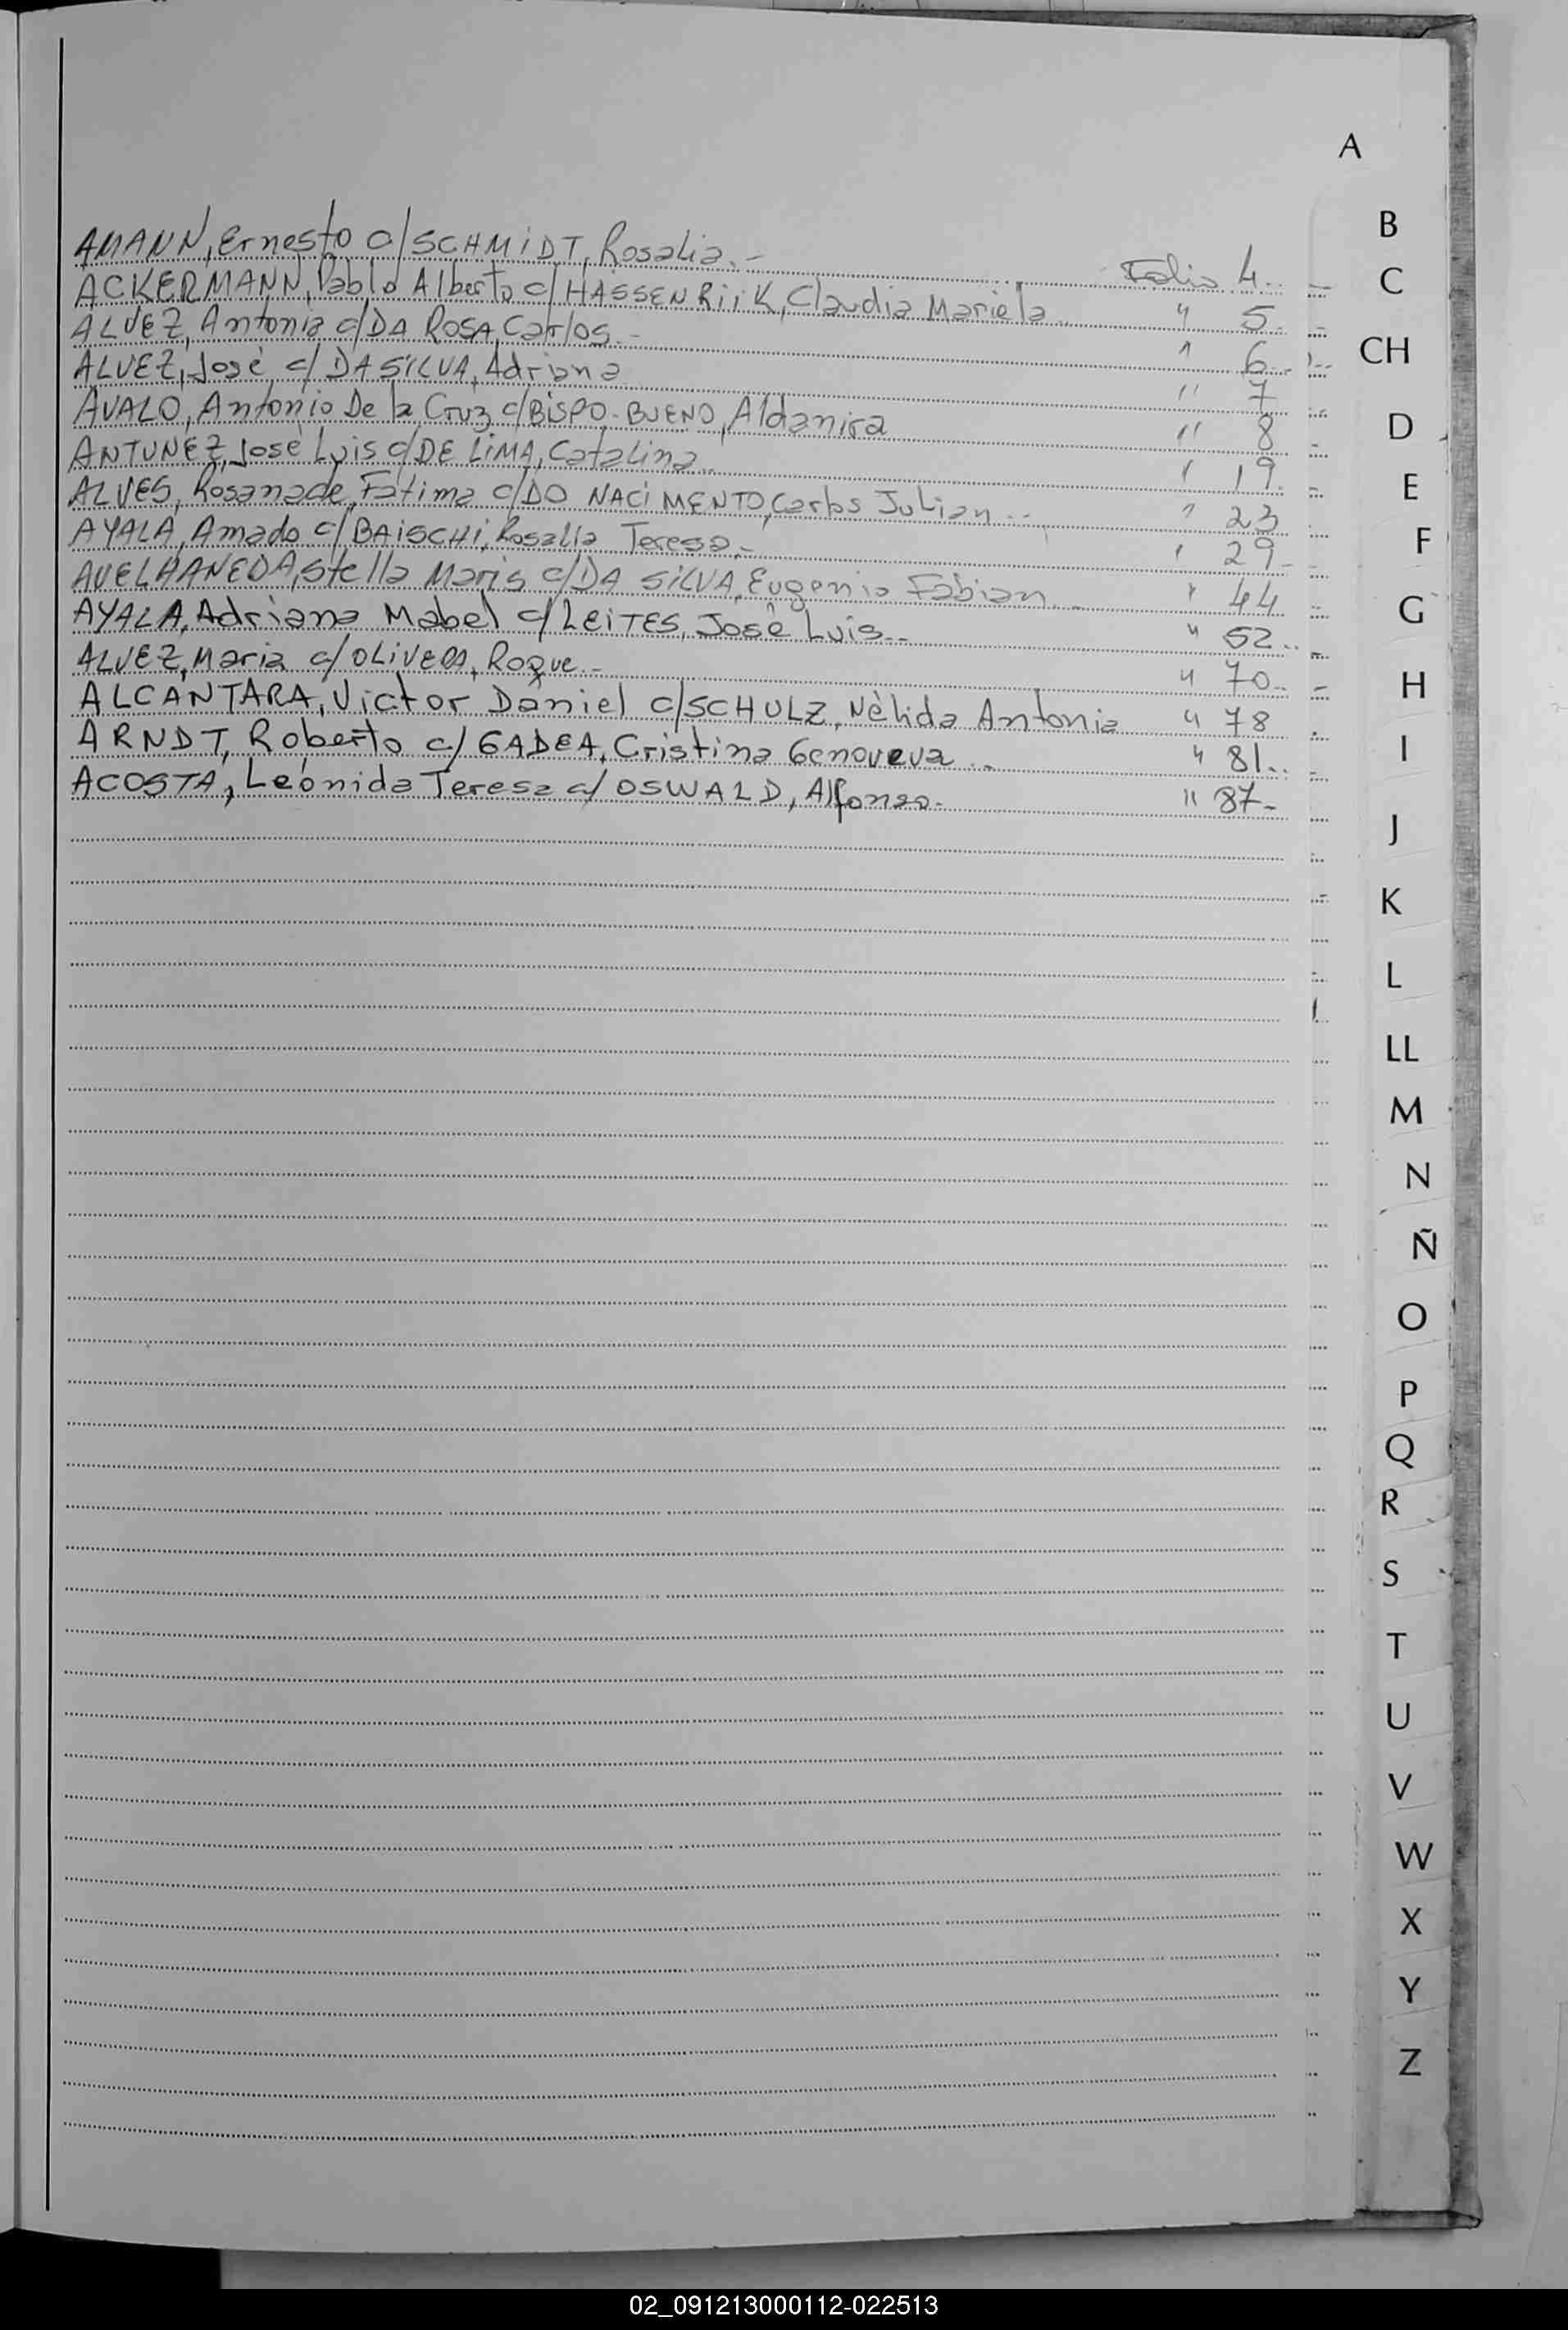 A
AMANN, Ernesto c/SCHMIDT, Rosalia.- Folio 4.
ACKERMANN, Pablo Alberto c/HASSENRiiK, Claudia Mariela " 5.
ALVEZ, Antonia c/DA ROSA, Carlos.- " 6.
ALVEZ, José c/ DA SILVA, Adriana " 7
AVALO, Antonio De la Cruz c/BISPO-BUENO, Aldanira " 8
ANTUNEZ, José Luis c/DE LIMA, Catalina.. " 19.
ALVES, Rosanade Fátima c/DO NACIMENTO, Carlos Julian.-. " 23
AYALA, Amado c/BAISCHI, Rosalia Teresa.- " 29.
AVELHANEDA, Stella Maris c/DA SILVA, Eugenio Fabian.-. " 44
AYALA, Adriana Mabel c/LEITES, José Luis.- " 52.
ALVEZ, Maria c/OLIVERA, Roque.- " 70.
ALCANTARA, Victor Daniel c/SCHULZ, Nèlida Antonia " 78
ARNDT, Roberto c/ GADEA, Cristina Genoveva.. " 81.
ACOSTA, Leónida Teresa c/ OSWALD, Alfonso. " 87-
B
C
CH
D
E
F
G
H
I
J
K
L
LL
M
N
Ñ
O
P
Q
R
S
T
U
V
W
X
Y
Z
02_091213000112-022513